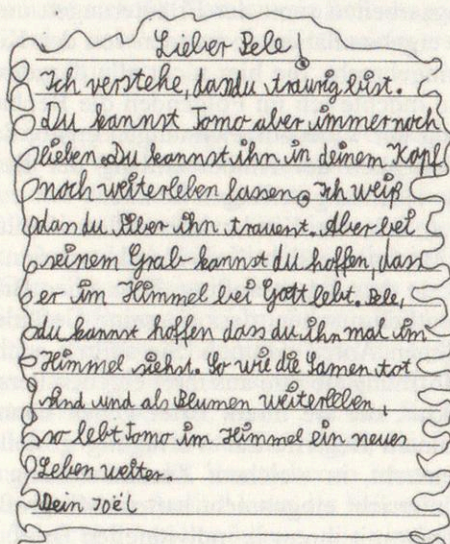 Lieber Pele
Ich verstehe, dasdu traurig bist.
Du kannst Tomo aber immer noch
lieben. Du kannst ihn in deinem Kopf
noch weiterleben lassen. Ich weiß
das du über ihn trauerst. Aber bei
seinem Grab kannst du hoffen, dass
er im Himmel bei Gott lebt. Pele,
du kannst hoffen dass du ihn mal im
Himmel siehst. So wie die Samen tot
sind und als Blumen weiterleben,
so lebt Tomo im Himmel ein neues
Leben weiter.
Dein Joël